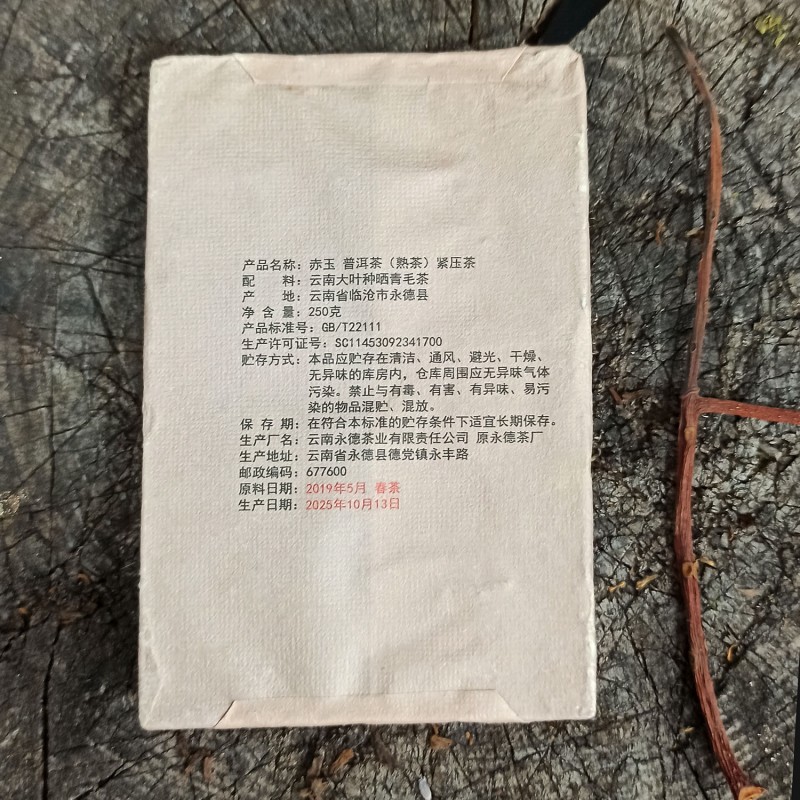 产品名称：赤玉 普洱茶（熟茶）紧压茶
配 料：云南大叶种晒青毛茶
产 地：云南省临沧市永德县
净 含 量：250克
产品标准号：GB/T22111
生产许可证号：SC11453092341700
贮存方式：本品应贮存在清洁、通风、避光、干燥、
无异味的库房内，仓库周围应无异味气体
污染。禁止与有毒、有害、有异味、易污
染的物品混贮、混放。
保 存 期：在符合本标准的贮存条件下适宜长期保存。
生产厂名：云南永德茶业有限责任公司 原永德茶厂
生产地址：云南省永德县德党镇永丰路
邮政编码：677600
原料日期：2019年5月 春茶
生产日期：2025年10月13日